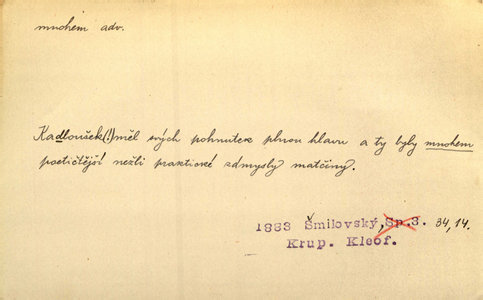 mnohem adv.
Kadloušek(!) měl svých pohnutek plnou hlavu a ty byly mnohem
poetičtější nežli praktické zdmysly matčiny.
1883 Šmilovský, Sp.3. 34,14.
Krup. Kleof.